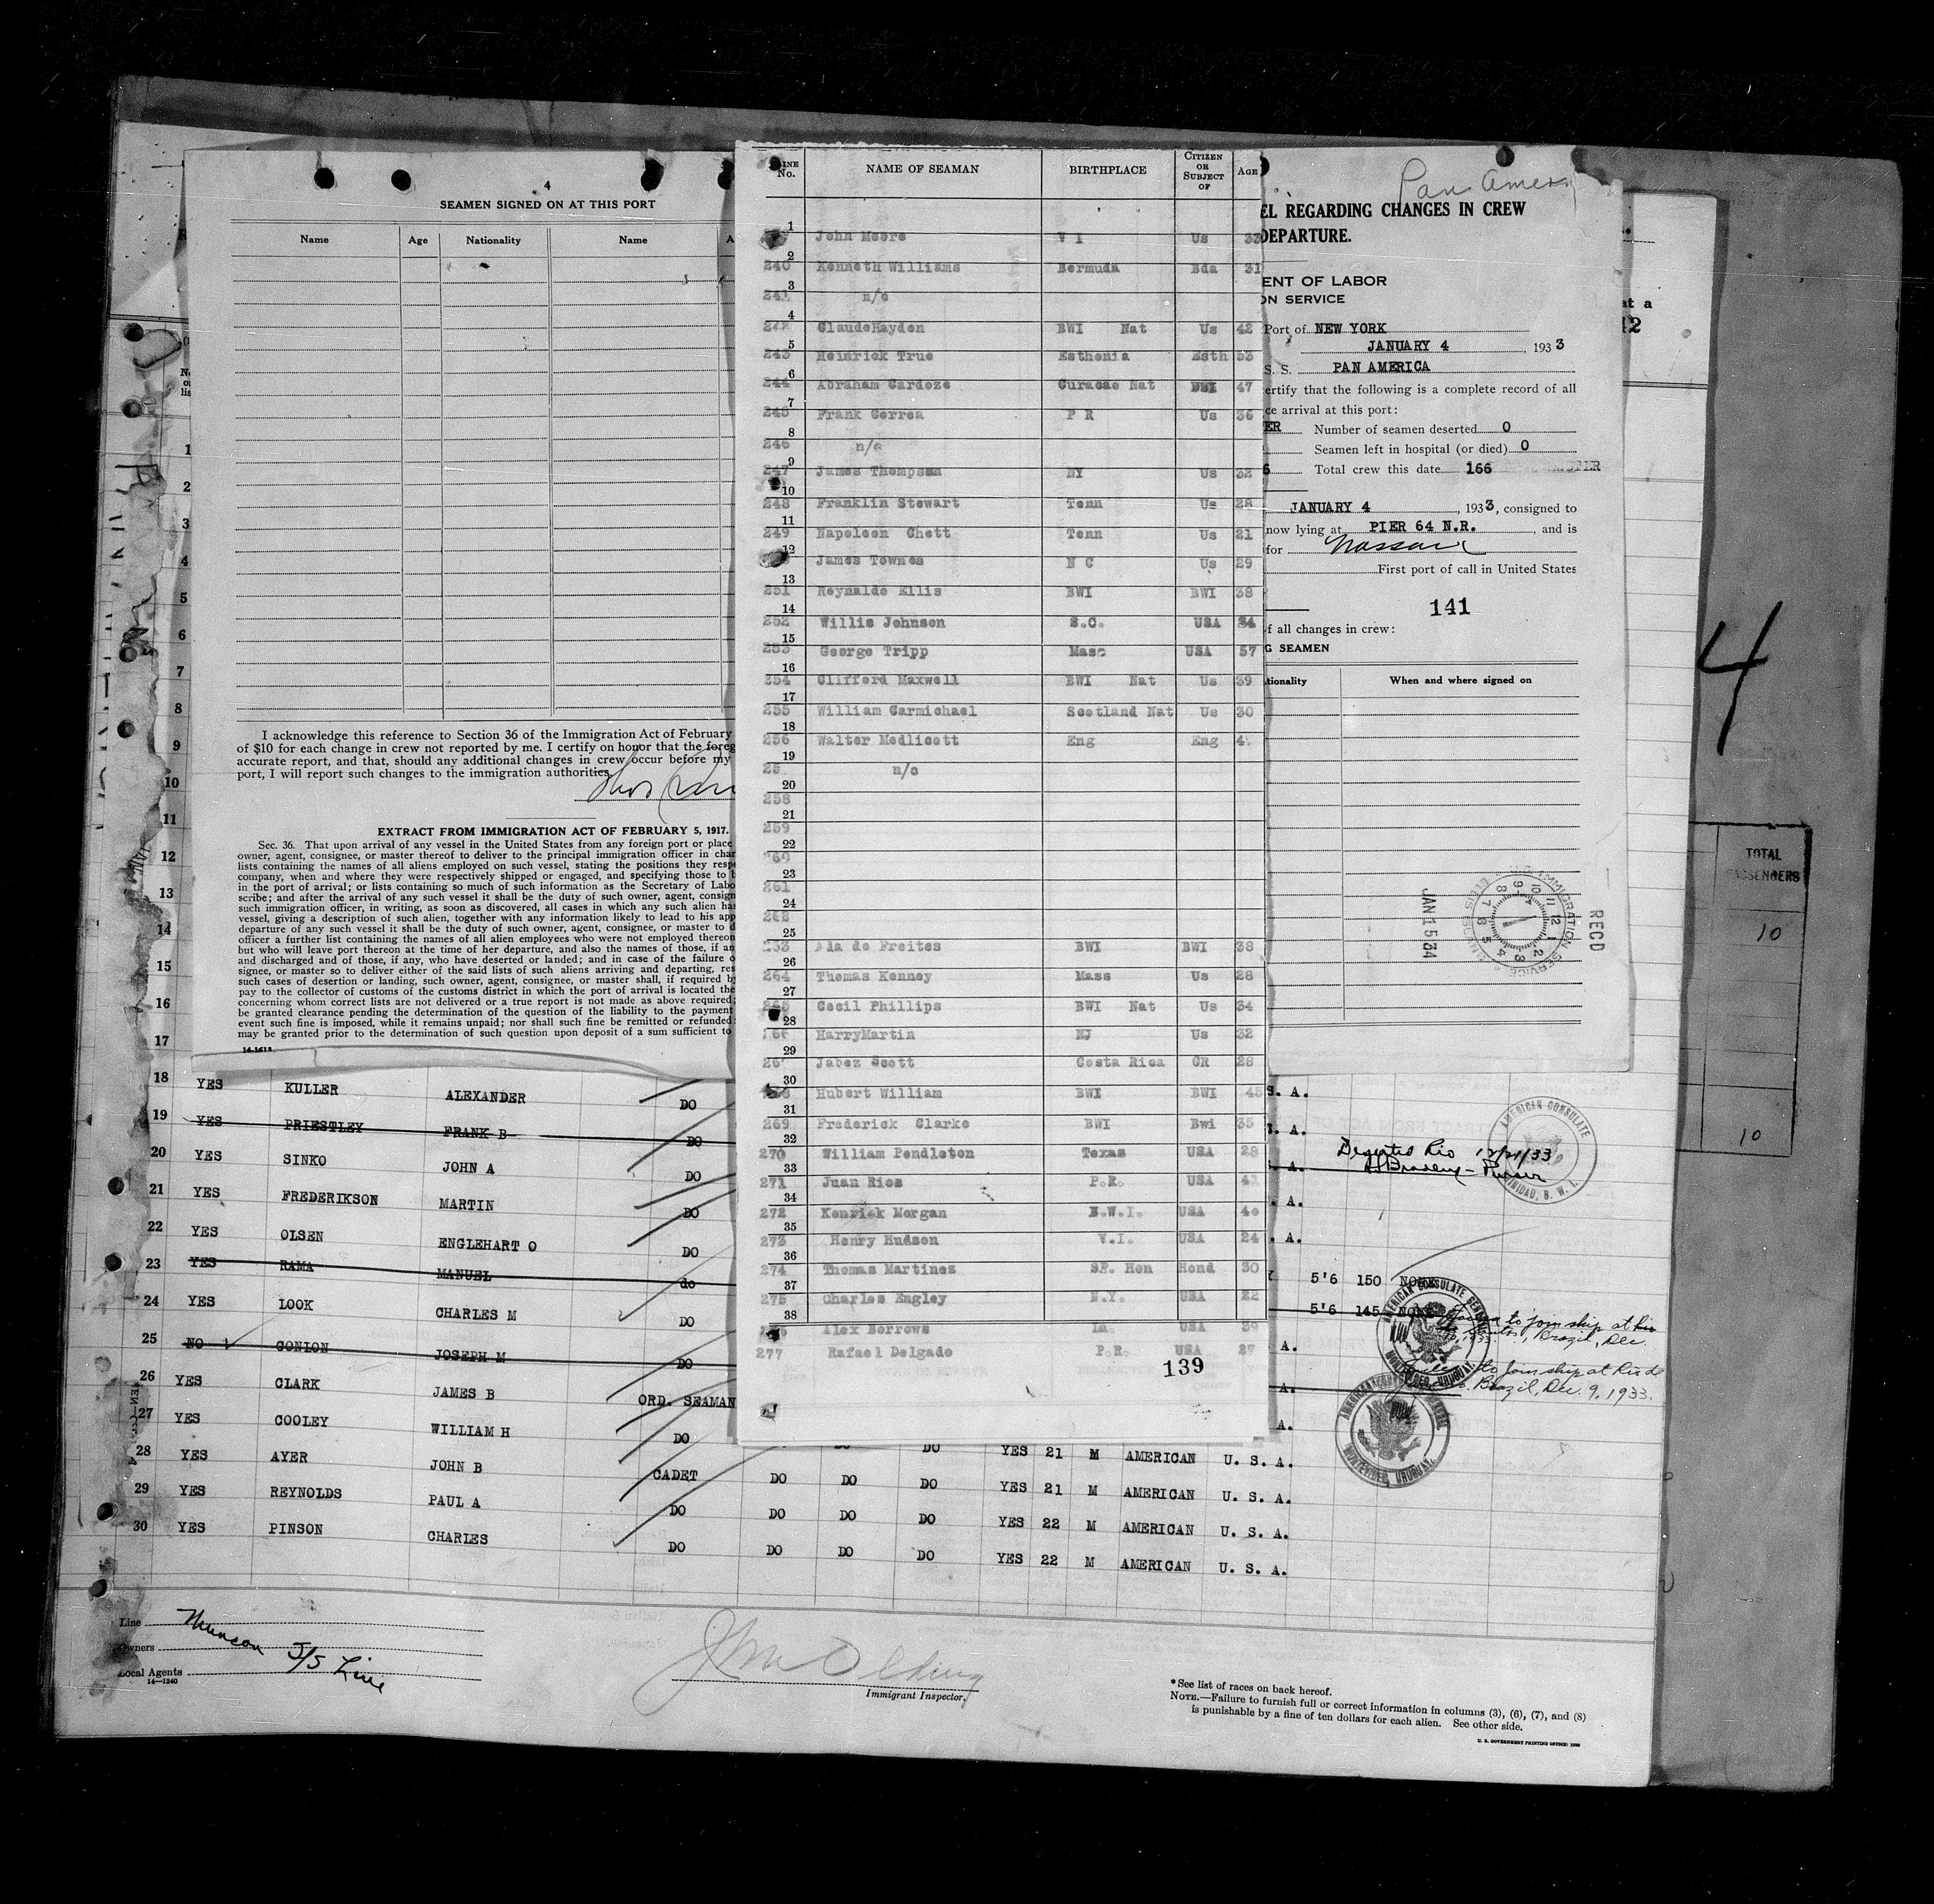 4
SEAMEN SIGNED ON AT THIS PORT
Name Age Nationality Name
I acknowledge this reference to Section 36 of the Immigration Act of February
of $10 for each change in crew not reported by me. I certify on honor that the foreg
accurate report, and that, should any additional changes in crew occur before my
port, I will report such changes to the immigration authorities.
EXTRACT FROM IMMIGRATION ACT OF FEBRUARY 5, 1917.
Sec. 36. That upon arrival of any vessel in the United States from any foreign port or place
owner, agent, consignee, or master thereof to deliver to the principal immigration officer in char
lists containing the names of all aliens employed on such vessel, stating the positions they resp
company, when and where they were respectively shipped or engaged, and specifying those to
in the port of arrival; or lists containing so much of such information as the Secretary of Labo
scribe; and after the arrival of any such vessel it shall be the duty of such owner, agent, consign
such immigration officer, in writing, as soon as discovered, all cases in which any such alien has
vessel, giving a description of such alien, together with any information likely to lead to his app
departure of any such vessel it shall be the duty of such owner, agent, consignee, or master to d
officer a further list containing the names of all alien employees who were not employed thereon
but who will leave port thereon at the time of her departure, and also the names of those, if an
and discharged and of those, if any, who have deserted or landed; and in case of the failure o
signee, or master so to deliver either of the said lists of such aliens arriving and departing, res
such cases of desertion or landing, such owner, agent, consignee, or master shall, if required b
pay to the collector of customs of the customs district in which the port of arrival is located the
concerning whom correct lists are not delivered or a true report is not made as above required;
be granted clearance pending the determination of the question of the liability to the payment
event such fine is imposed, while it remains unpaid; nor shall such fine be remitted or refunded
may be granted prior to the determination of such question upon deposit of a sum sufficient to
LINE No. NAME OF SEAMAN BIRTHPLACE CITIZEN OR SUBJECT OF AGE
1 John Moore V I Us 33
2 240 Kenneth Williams Bermuda Bda 31
3 241 n/c
4 242 ClaudeHayden BWI Nat Us 42
5 243 Heinrick True Esthonia Esth 53
6 244 Abraham Cardoze Curacao Nat 47
7 245 Frank Correa P R Us 36
8 246 n/c
9 247 James Thompson NY Us 32
10 248 Franklin Stewart Tenn Us 28
11 249 Napoleon Chett Tenn Us 21
12 James Townes N C Us 29
13 251 Reynalde Ellis BWI BWI 38
14 252 Willis Johnson S.C. USA 34
15 253 George Tripp Mass USA 57
16 254 Clifford Maxwell BWI Nat Us 39
17 255 William Carmichael Scotland Nat Us 30
18 256 Walter Medlicott Eng Eng 4
19 25 n/c
20 258
21 259
22 260
23 261
24 262
25 Ida de Freites BWI BWI 38
26 264 Thomas Kenney Mass Us 28
27 265 Cecil Phillips BWI Nat Us 34
28 HarryMartin NJ Us 32
29 Jabez Scott Costa Rica CR 28
30 Hubert William BWI BWI 45
31 269 Frederick Clarke BWI Bwi 35
32 270 William Pendleton Texas USA 28
33 271 Juan Rios P.R. USA 41
34 272 Kenrick Morgan B.W.I. USA 40
35 273 Henry Hudson V.I. USA 24
36 274 Thomas Martinez SP. Hon Hond 30
37 275 Charles Engley N.Y. USA 22
38 Alex Borrows La. USA 39
277 Rafael Delgado P.R. USA 27
139
Pan Amer
EL REGARDING CHANGES IN CREW
DEPARTURE.
ENT OF LABOR
ON SERVICE
Port of NEW YORK
JANUARY 4, 1933
S. S. PAN AMERICA
ertify that the following is a complete record of all
ce arrival at this port:
ER Number of seamen deserted 0
Seamen left in hospital (or died) 0
6 Total crew this date 166
JANUARY 4, 1933, consigned to
now lying at PIER 64 N.R., and is
for Nassau
First port of call in United States
141
f all changes in crew:
G SEAMEN
tionality When and where signed on
RECD
JAN 15 34
at a
12
4
TOTAL PASSENGERS
10
10
1
2
3
4
5
6
7
8
9
10
11
12
13
14
15
16
17
18 YES KULLER ALEXANDER DO S. A.
19 YES PRIESTLEY FRANK B DO . A.
Deserted Rio 12/21/33
20 YES SINKO JOHN A DO . A.
21 YES FREDERIKSON MARTIN DO . A.
22 YES OLSEN ENGLEHART O DO . A.
23 YES RAMA MANUEL do 5'6 150 NONE
24 YES LOOK CHARLES M DO 5'6 145 NONE
25 NO CONLON JOSEPH M DO A.
to join ship at Rio
Santos, Brazil, Dec
26 YES CLARK JAMES B ORD. SEAMAN A.
to join ship at Rio de
Brazil, Dec. 9, 1933.
27 YES COOLEY WILLIAM H DO DO DO YES 21 M AMERICAN U. S. A.
28 YES AYER JOHN B CADET DO DO DO YES 21 M AMERICAN U. S. A.
29 YES REYNOLDS PAUL A DO DO DO DO YES 22 M AMERICAN U. S. A.
30 YES PINSON CHARLES DO DO DO DO YES 22 M AMERICAN U. S. A.
AMERICAN CONSULATE
TRINIDAD, B. W. I.
AMERICAN CONSULATE GENERAL
MONTEVIDEO, URUGUAY.
MONTEVIDEO, URUGUAY.
Line Munson S/S Line
Owners
Local Agents
14—1240
Immigrant Inspector.
*See list of races on back hereof.
NOTE.—Failure to furnish full or correct information in columns (3), (6), (7), and (8)
is punishable by a fine of ten dollars for each alien. See other side.
U. S. GOVERNMENT PRINTING OFFICE: